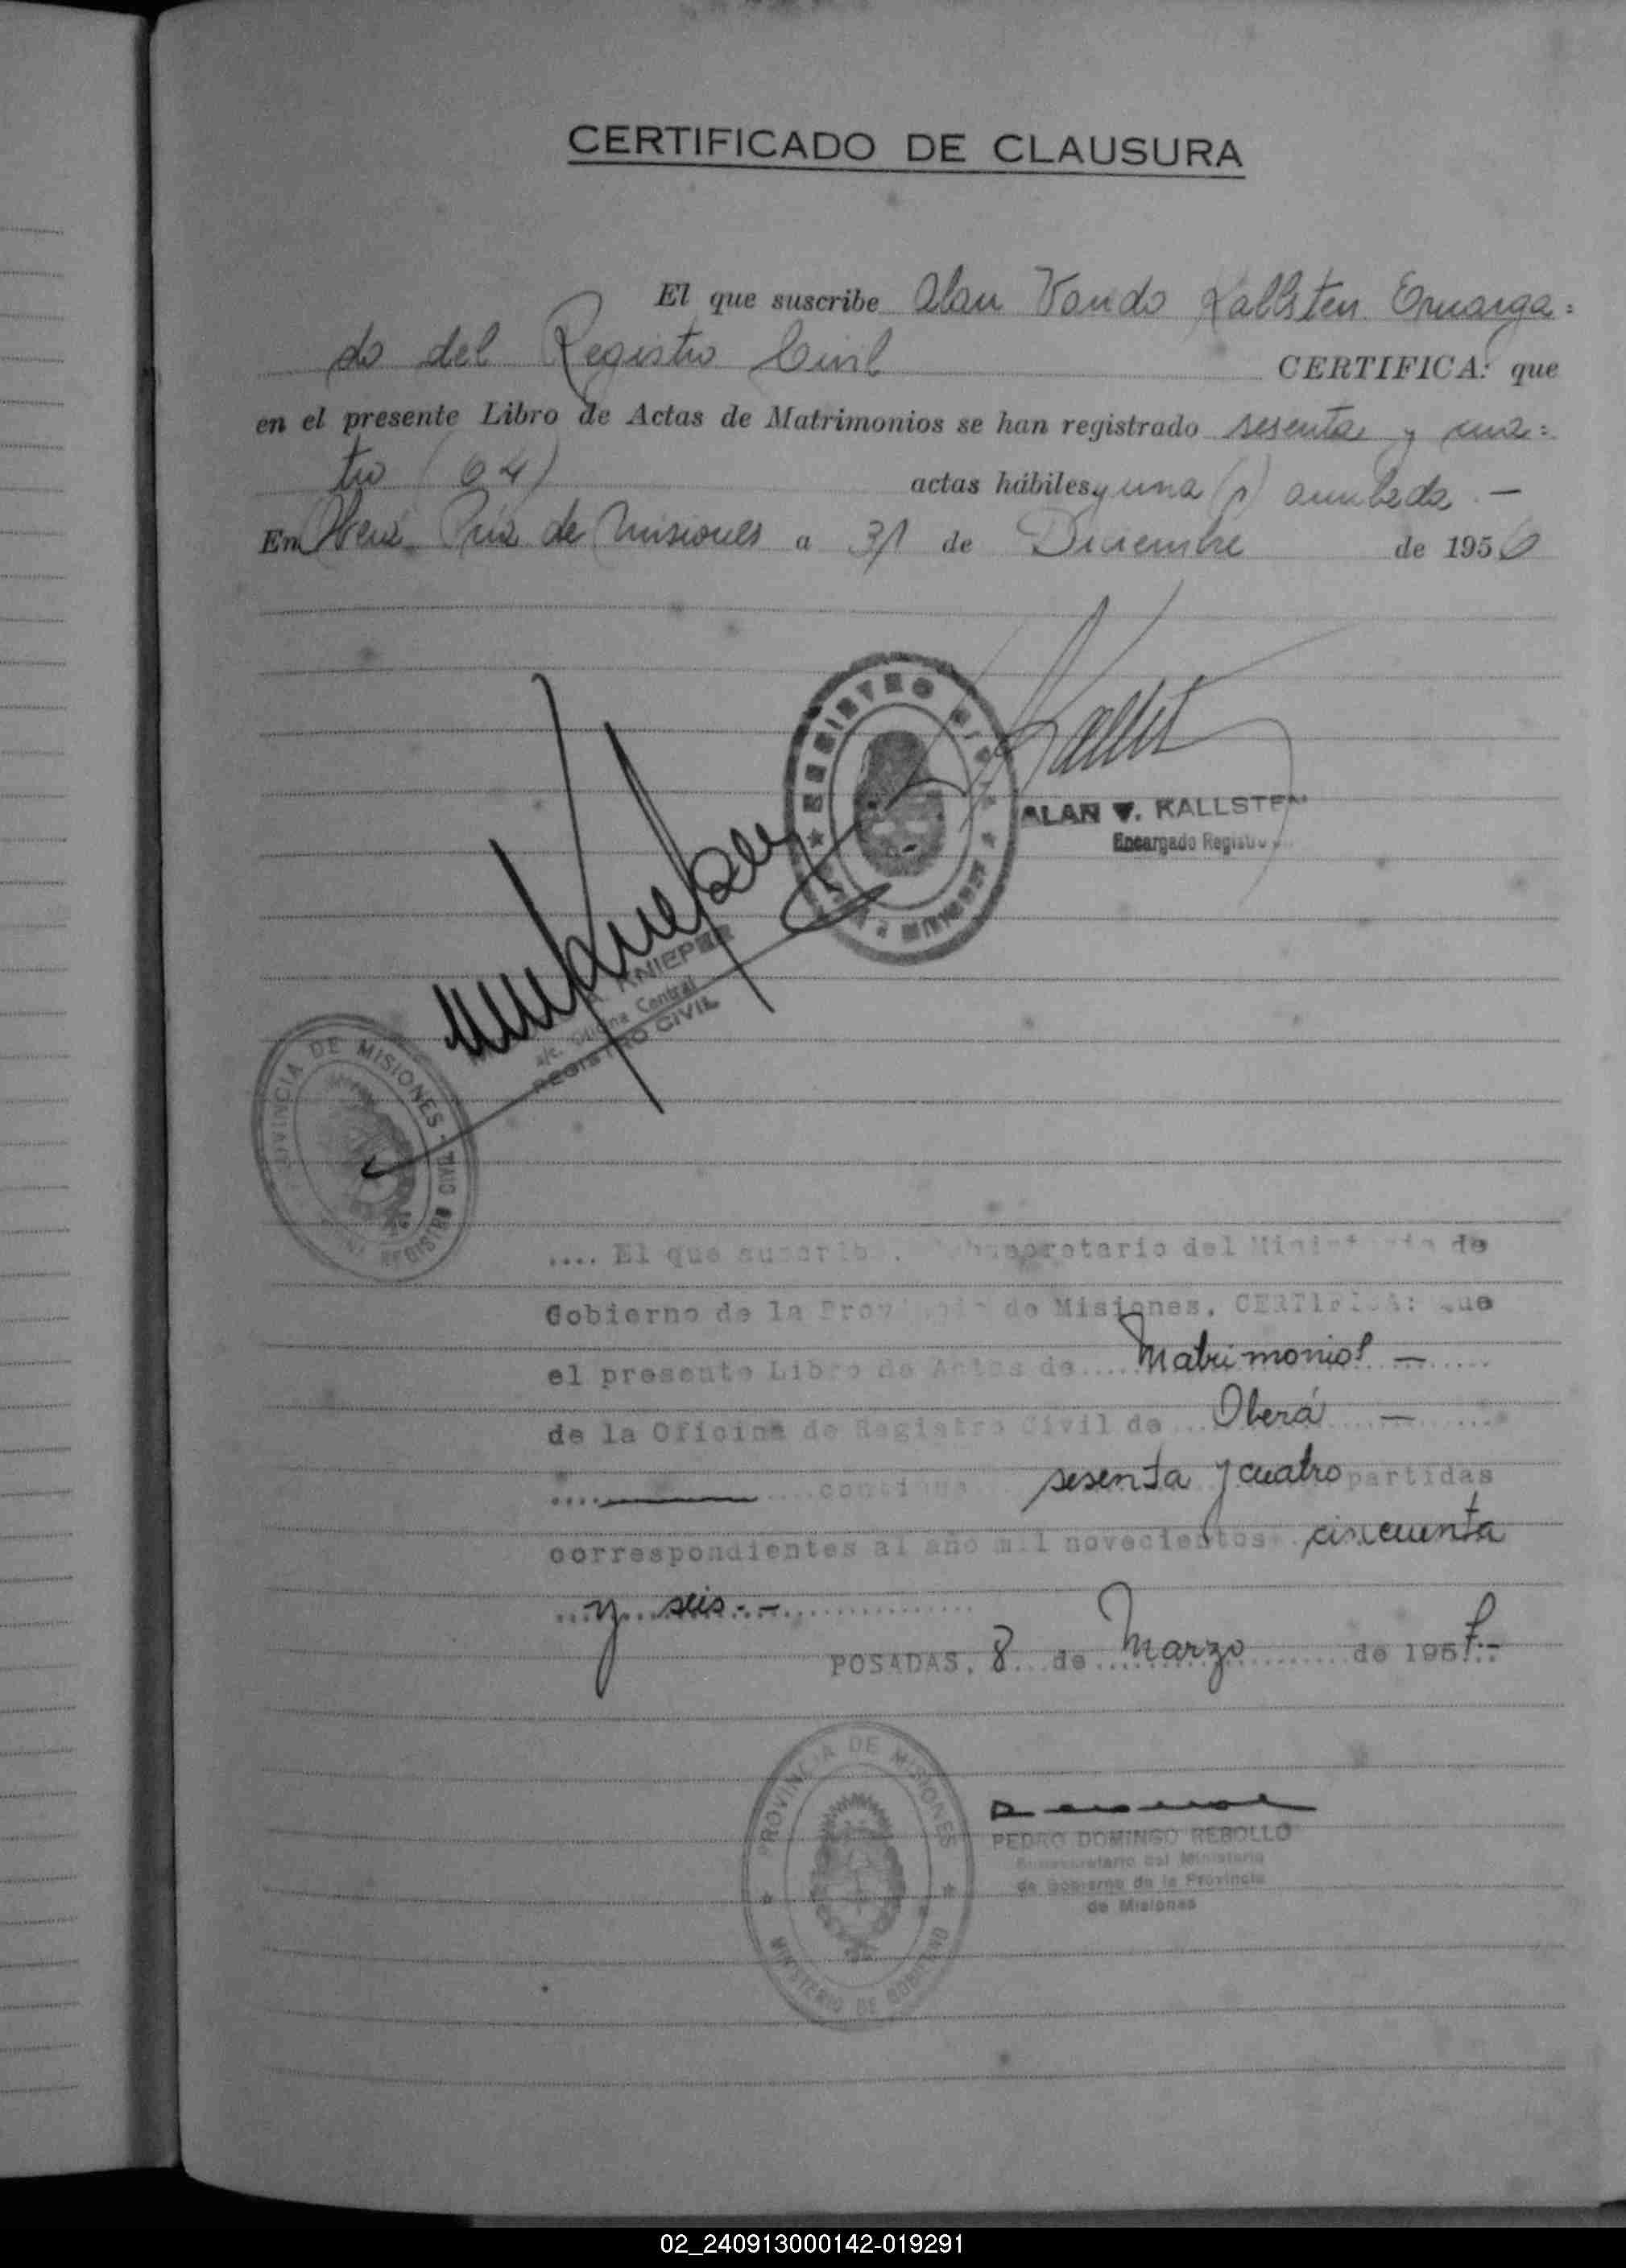 CERTIFICADO DE CLAUSURA
El que suscribe Alan Vando Kallsten Encarga=
do del Registro Civil CERTIFICA: que
en el presente Libro de Actas de Matrimonios se han registrado sesenta y cua=
tro (64) actas hábiles y una (1) anulada.—
En Oberá Pcia de Misiones a 31 de Diciembre de 1956
REGISTRO
ALAN V. KALLSTEN
Encargado Registro
A. KNIEPER
a/c. Oficina Central
REGISTRO CIVIL
PROVINCIA DE MISIONES
REGISTRO
.... El que suscribe, Subsecretario del Ministerio de
Gobierno de la Provincia de Misiones, CERTIFICA: que
el presente Libro de Actas de.... Matrimonios —
de la Oficina de Registro Civil de ... Oberá —
contiene sesenta y cuatro partidas
correspondientes al año mil novecientos cincuenta
y seis.—
POSADAS, 8 de Marzo de 1957.-
PROVINCIA DE MISIONES
MINISTERIO DE GOBIERNO
PEDRO DOMINGO REBOLLO
Subsecretario del Ministerio
de Gobierno de la Provincia
de Misiones
02_240913000142-019291